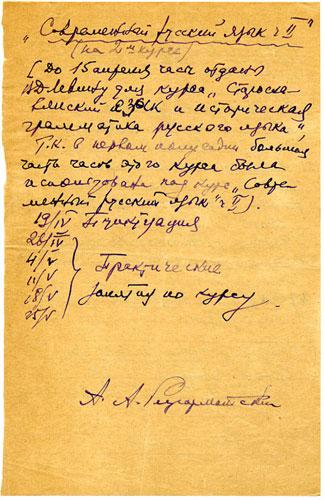 „Современный русский язык ч II"
(на 2м курсе)
[До 15 апреля часы отданы
В.Д. Левину для курса „Старосла
вянский язык и историческая
грамматика русского языка"
т.к. в первом полугодии большая
часть часов этого курса была
использована под курс „Совре
менный русский язык" ч II].
19/IV Пунктуация
26/IV
4/V
11/V Практические
18/V занятия по курсу
25/V
А. А. Реформатский